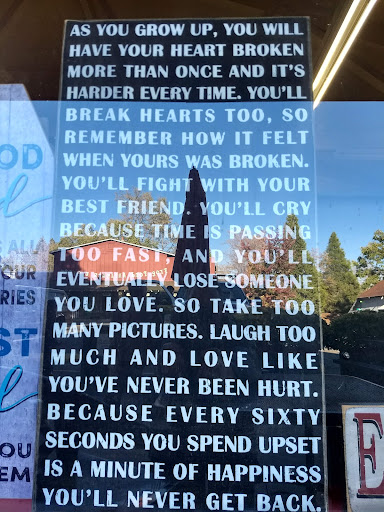 AS YOU GROW UP, YOU WILL
HAVE YOUR HEART BROKEN
MORE THAN ONCE AND IT'S
HARDER EVERY TIME. YOU'LL
BREAK HEARTS TOO, SO
REMEMBER HOW IT FELT
WHEN YOURS WAS BROKEN.
YOU'LL FIGHT WITH YOUR
BEST FRIEND. YOU'LL CRY
BECAUSE TIME IS PASSING
TOO FAST, AND YOU'LL
EVENTUALLY LOSE SOMEONE
YOU LOVE. SO TAKE TOO
MANY PICTURES. LAUGH TOO
MUCH AND LOVE LIKE
YOU'VE NEVER BEEN HURT.
BECAUSE EVERY SIXTY
SECONDS YOU SPEND UPSET
IS A MINUTE OF HAPPINESS
YOU'LL NEVER GET BACK.